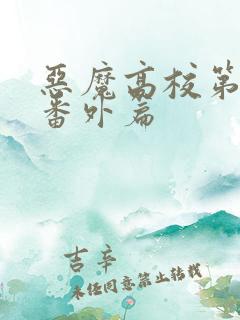 惡魔高校第
番外篇
吉辛
未経同意禁止轉載